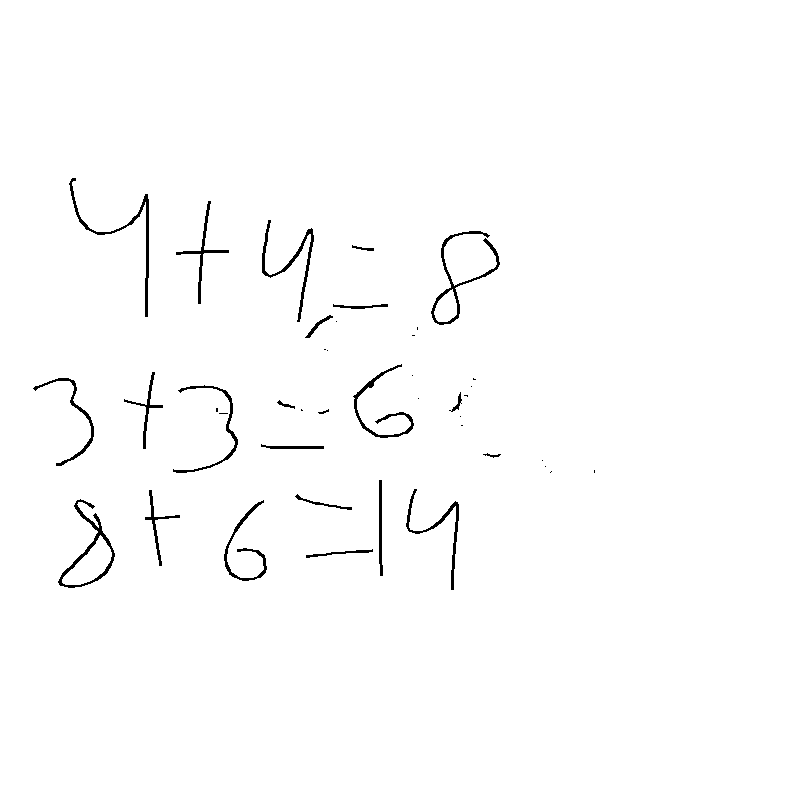 4+4=8
3+3=6
8+6=14